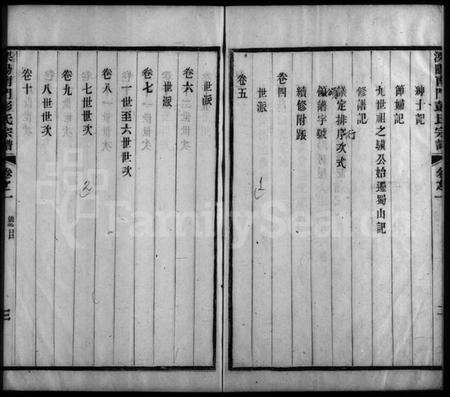 紳士記
節婦記
九世祖之璩公始遷蜀山記
修譜記
議定排序次式
偏諱字號
續修附跋
卷四
世派
卷五
世派
卷六
世派
卷七
一世至六世世次
卷八
七世世次
卷九
八世世次
卷十
宗譜
卷之一
三
FamilySearch